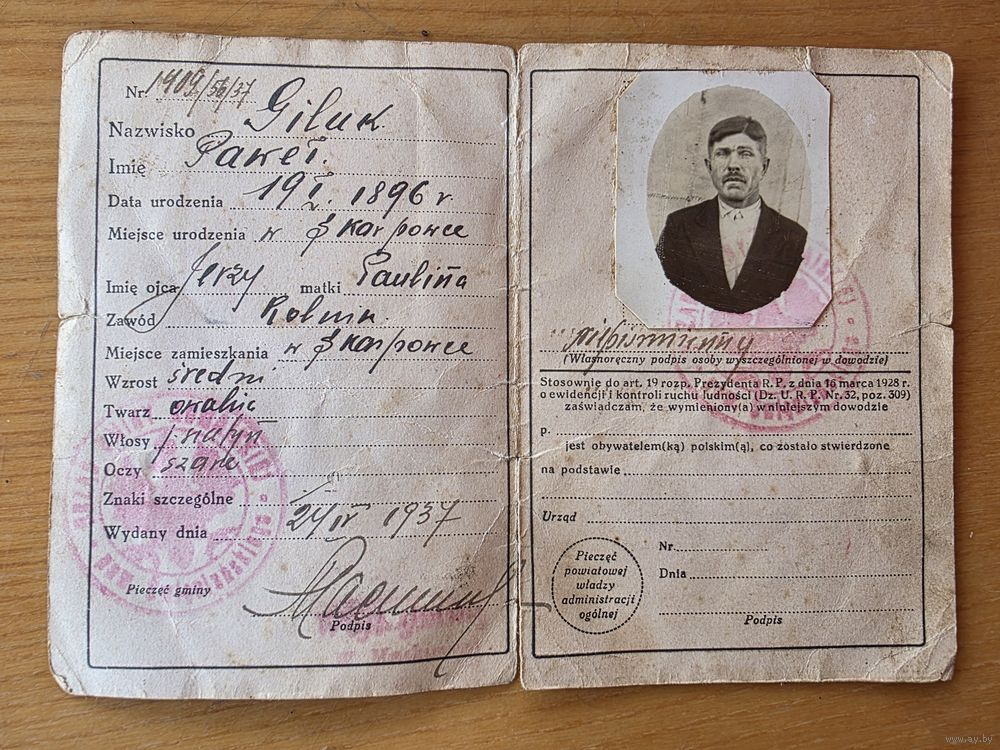 Nr. 1909/56/37
Nazwisko Giluk
Imię Paweł.
Data urodzenia 19 I. 1896 r.
Miejsce urodzenia w Skarpowce
Imię ojca Jerzy matki Paulina
Zawód Rolnik
Miejsce zamieszkania w Skarpowce
Wzrost średni
Twarz owalna
Włosy szatyn
Oczy szare
Znaki szczególne
Wydany dnia 24 IV 1937
Pieczęć gminy
Podpis
niepiśmienny
(Własnoręczny podpis osoby wyszczególnionej w dowodzie)
Stosownię do art. 19 rozp. Prezydenta R. P. z dnia 16 marca 1928 r.
o ewidencji i kontroli ruchu ludności (Dz. U. R. P. Nr. 32, poz. 309)
zaświadczam, że wymieniony(a) w niniejszym dowodzie
p.
jest obywatelem(ką) polskim(ą), co zostało stwierdzone
na podstawie
Urząd
Pieczęć
powiatowej
władzy
administracji
ogólnej
Nr.
Dnia
Podpis
www.ay.by